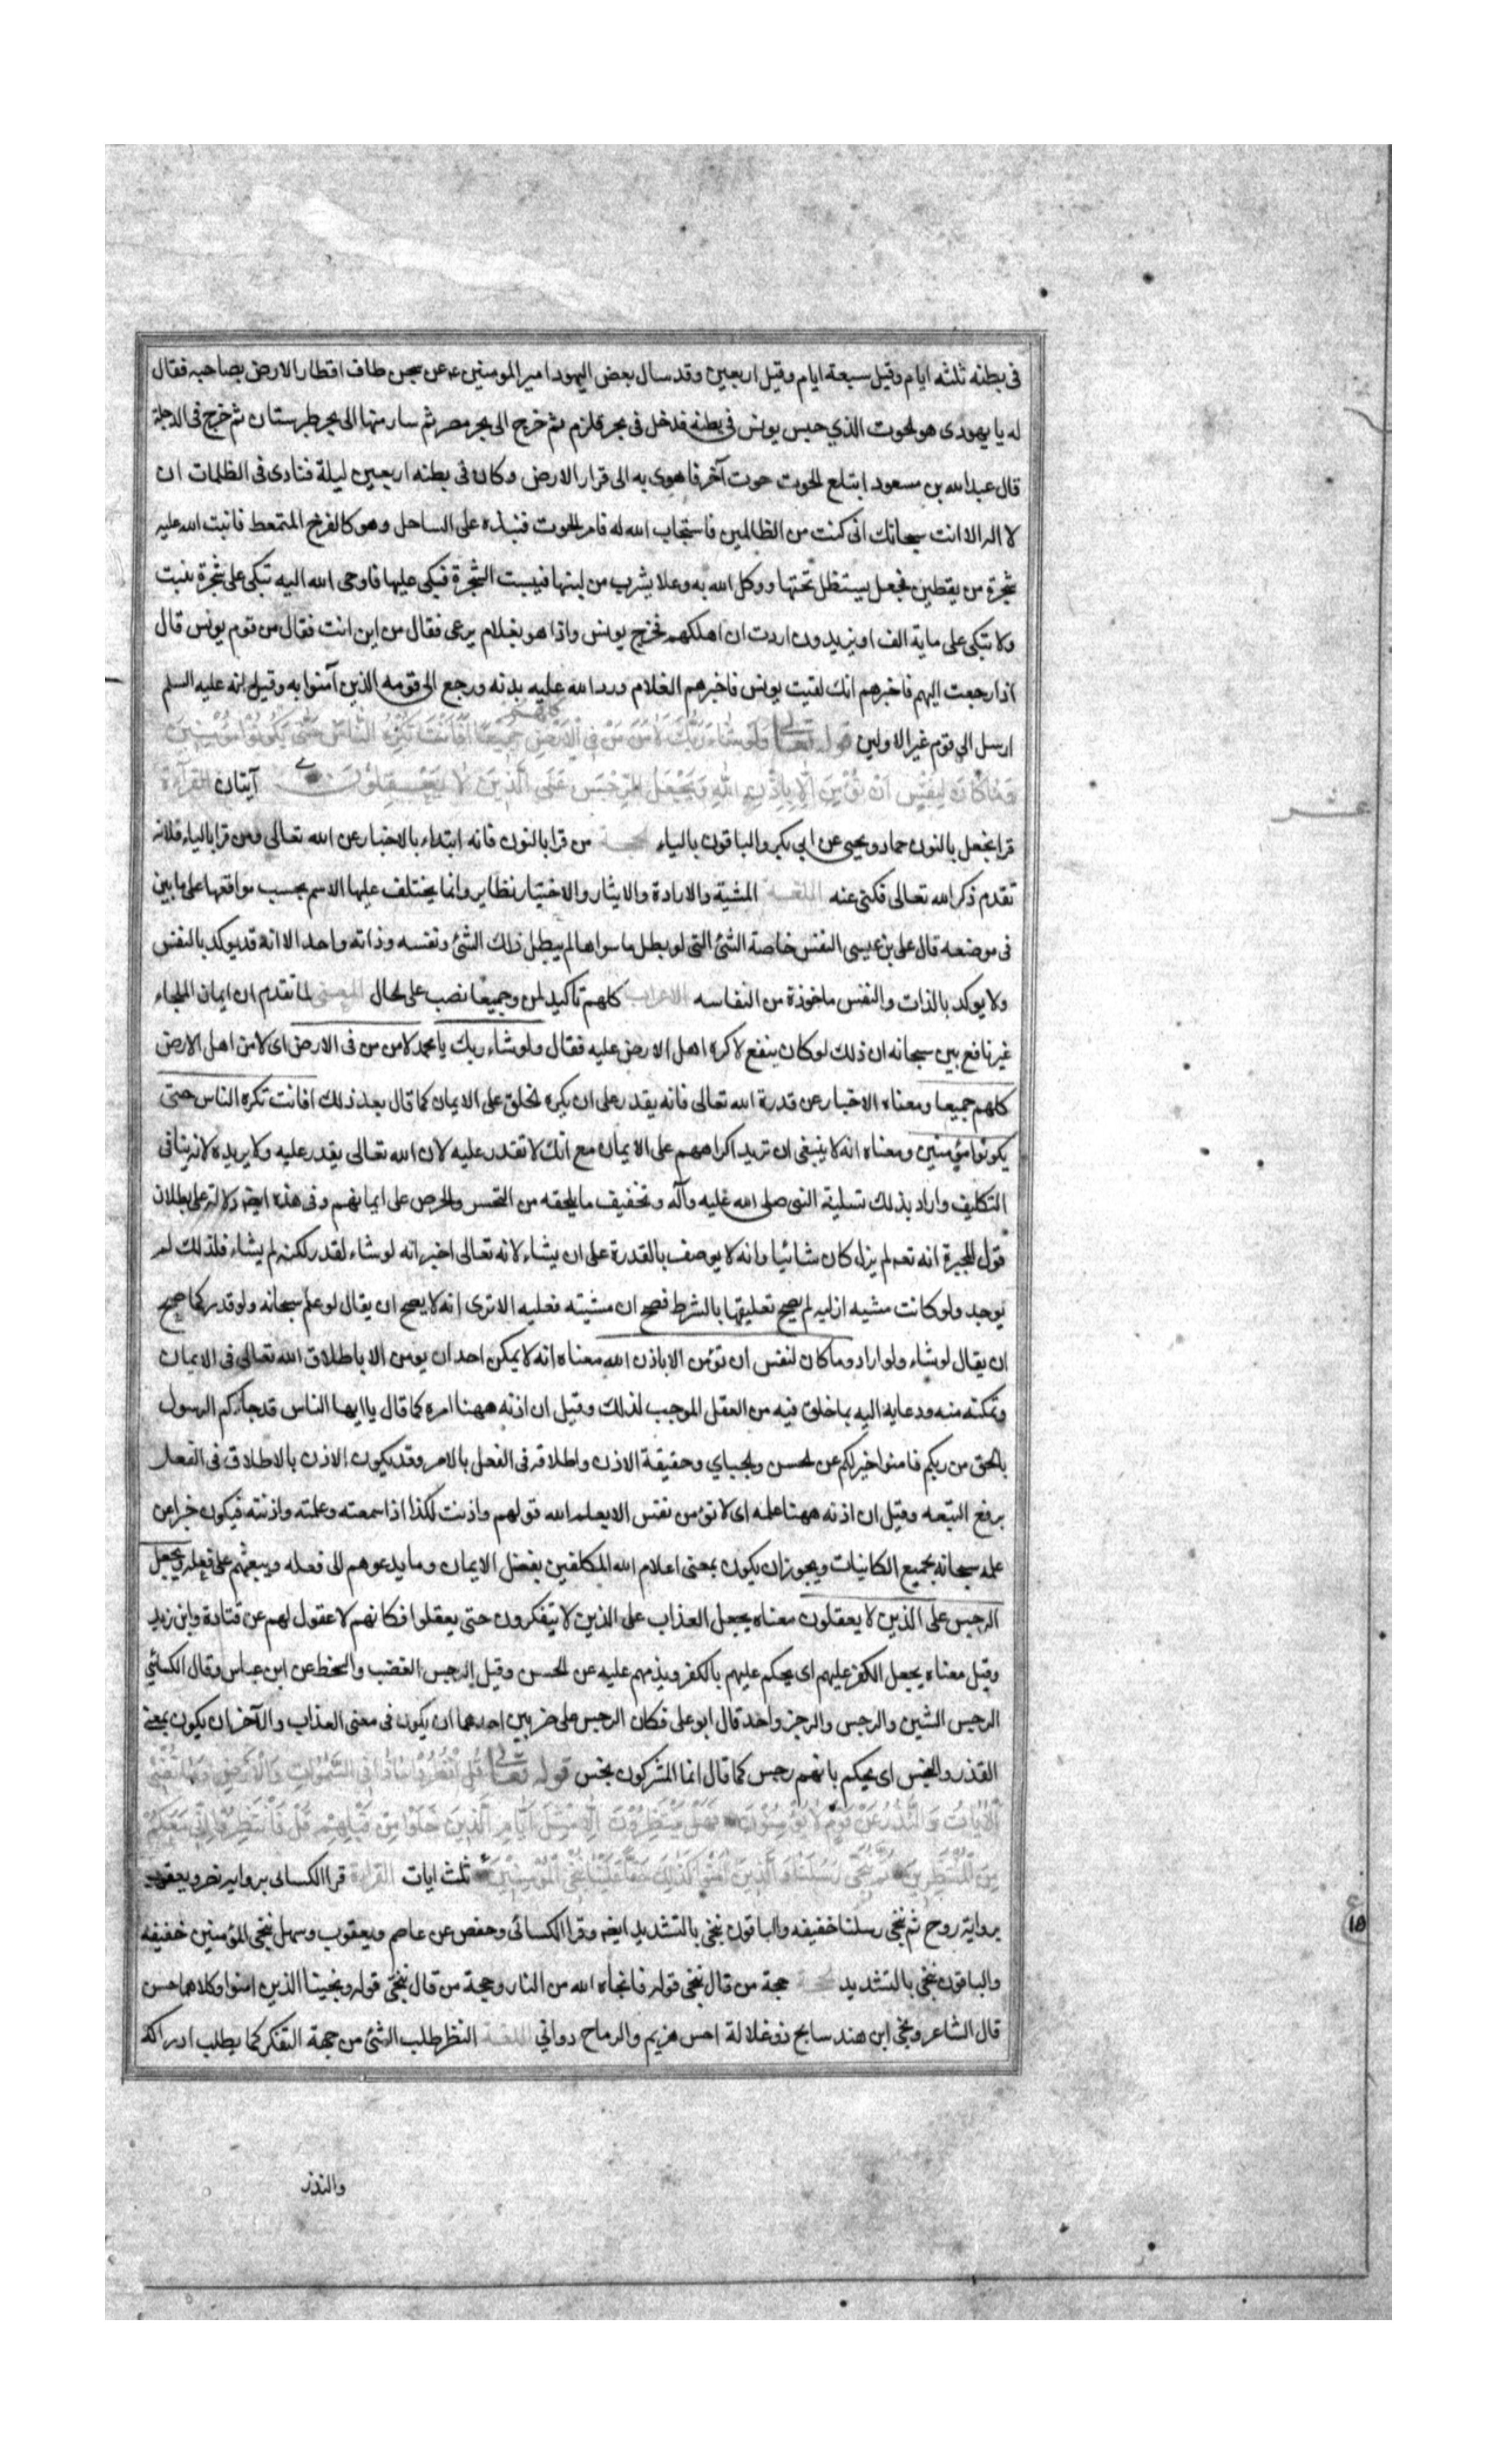 فى بطنه ثلثه ايام وقيل سبعة ايام وقيل اربعين وقد سال بعض اليهود امير المومنين ع عن سجن طاف اقطار الارض بصاحبه فقال
له يا يهودى هو لحوت الذي حبس يونس فى بطنه فدخل فى بحر قلزم ثم خرج الى بحر مصر ثم سار منها الى بحر طبرستان ثم خرج فى الدجلة
قال عبد الله بن مسعود ابتلع لحوت حوت آخر فاهوى به الى قرار الارض وكان فى بطنه اربعين ليلة فنادى فى الظلمات ان
لا اله الا انت سبحانك انى كنت من الظالمين فاستجاب الله له فامر لحوت فنبذه على الساحل وهو كالفرخ المتمعط فانبت الله عليه
شجرة من يقطين فجعل يستظل تحتها ووكل الله به وعلا يشرب من لبنها فيبست الشجرة فبكى عليها فاوحى الله اليه تبكى على شجرة يبست
ولا تبكى على ماية الف او يزيدون اردت ان اهلكهم فخرج يونس واذا هو بغلام يرعى فقال من اين انت فقال من قوم يونس قال
اذا رجعت اليهم فاخبرهم انك لقيت يونس فاخبرهم الغلام ورد الله عليه بدنه ورجع الى قومه الذين آمنوا به وقيل انه عليه السلم
ارسل الى قوم غير الاولين قوله تعالى وَلَوْ شَاءَ رَبُّكَ لَآمَنَ مَنْ فِى الْاَرْضِ كلهم جَمِيعًا اَفَاَنْتَ تُكْرِهُ النَّاسَ حَتّٰى يَكُونُوا مُؤْمِنِينَ
وَمَا كَانَ لِنَفْسٍ اَنْ تُؤْمِنَ اِلَّا بِاِذْنِ اللّٰهِ وَيَجْعَلُ الرِّجْسَ عَلَى الَّذِينَ لَا يَعْقِلُونَ آيتان القرآءة
قرا نجعل بالنون حماد ويحيى عن ابى بكر والباقون بالياء الحجة من قرا بالنون فانه ابتداء بالاخبار عن الله تعالى ومن قرا بالياء فلانه
تقدم ذكر الله تعالى فكنى عنه اللغة المشية والارادة والايثار والاختيار نظاير وانما يختلف عليها الاسم بحسب مواقعها على ما بين
فى موضعه قال على بن عيسى النفس خاصة الشئ التى لو بطل ما سواها لم يبطل ذلك الشئ ونفسه وذاته واحد الا انه قد يوكد بالنفس
ولا يوكد بالذات والنفس ماخوذة من النفاسه الاعراب كلهم تاكيد لمن وجميعا نصب على لحال المعنى لما تقدم ان ايمان الملجاء
غير نافع بين سبحانه ان ذلك لو كان ينفع لاكره اهل الارض عليه فقال ولو شاء ربك يا محمد لامن من فى الارض اى لامن اهل الارض
كلهم جميعا ومعناه الاخبار عن قدرة الله تعالى فانه يقدر على ان يكره لخلق على الايمان كما قال بعد ذلك افانت تكره الناس حتى
يكونوا مؤمنين ومعناه انه لا ينبغى ان تريد اكراههم على الايمان مع انك لا تقدر عليه لان الله تعالى يقدر عليه ولا يريده لانه ينافى
التكليف واراد بذلك تسلية النبى صلى الله عليه وآله وتخفيف ما يلحقه من التحسر والحرص على ايمانهم وفى هذه ايضا دلالة على بطلان
قول المجبرة انه تعه لم يزل كان شائيا وانه لا يوصف بالقدرة على ان يشاء لانه تعالى اخبر انه لو شاء لقدر لكنه لم يشاء فلذلك لم
يوجد ولو كانت مشيه ازليه لم يصح تعليقها بالشرط فصح ان مشيته فعليه الا ترى انه لا يصح ان يقال لو علم سبحانه ولو قدر كما صح
ان يقال لو شاء ولو اراد وما كان لنفس ان تؤمن الا باذن الله معناه انه لا يمكن احد ان يومن الا باطلاق الله تعالى فى الايمان
وتمكنه منه ودعايه اليه بما خلق فيه من العقل الموجب لذلك وقيل ان اذنه ههنا امره كما قال يا ايها الناس قد جاءكم الرسول
بالحق من ربكم فامنوا خيرا لكم عن لحسن ولجباي وحقيقة الاذن واطلاقه فى الفعل بالامر وقد يكون الاذن بالاطلاق فى الفعل
برفع التبعه وقيل ان اذنه ههنا علمه اى لا تؤمن نفس الا بعلم الله قولهم واذنت لكذا اذا سمعته وعلمته واذنته فيكون خبرا عن
علمه سبحانه بجميع الكاينات ويجوز ان يكون بمعنى اعلام الله المكلفين بفضل الايمان وما يدعوهم الى فعله ويبعثهم على فعله ويجعل
الرجس على الذين لا يعقلون معناه يجعل العذاب على الذين لا يتفكرون حتى يعقلوا فكانهم لا عقول لهم عن قتادة وابن زيد
وقيل معناه يجعل الكفر عليهم اى يحكم عليهم بالكفر ويذمهم عليه عن لحسن وقيل الرجس الغضب والسخط عن ابن عباس وقال الكسائي
الرجس الشين والرجس والرجز واحد قال ابو على فكان الرجس على ضربين احدهما ان يكون فى معنى العذاب والآخر ان يكون بمعنى
القذر والنجس اى يحكم بانهم رجس كما قال انما المشركون نجس قوله تعالى قُلِ انْظُرُوا مَاذَا فِى السَّمٰوَاتِ وَالْاَرْضِ وَمَا تُغْنِى
الْاٰيَاتُ وَالنُّذُرُ عَنْ قَوْمٍ لَا يُؤْمِنُونَ فَهَلْ يَنْتَظِرُونَ اِلَّا مِثْلَ اَيَّامِ الَّذِينَ خَلَوْا مِنْ قَبْلِهِمْ قُلْ فَانْتَظِرُوا اِنِّى مَعَكُمْ
مِنَ الْمُنْتَظِرِينَ ثُمَّ نُنَجِّى رُسُلَنَا وَالَّذِينَ اٰمَنُوا كَذٰلِكَ حَقًّا عَلَيْنَا نُنْجِ الْمُؤْمِنِينَ ثلث ايات القراءة قرا الكسائى برواية نصر ويعقوب
برواية روح ثم ننجى رسلنا خفيفه والباقون ننجى بالتشديد ايضا وقرا الكسائى وحفص عن عاصم ويعقوب وسهل ننجى المؤمنين خفيفه
والباقون ننجى بالتشديد الحجة حجة من قال ننجى قوله فانجاه الله من النار وحجة من قال ننجى قوله ونجينا الذين امنوا وكلاهما حسن
قال الشاعر ونجى ابن هند سابح ذو غلالة اجس هزيم والرماح دوانى اللغة النظر طلب الشئ من جهة التفكر كما يطلب ادراكه
والنذر
عشر